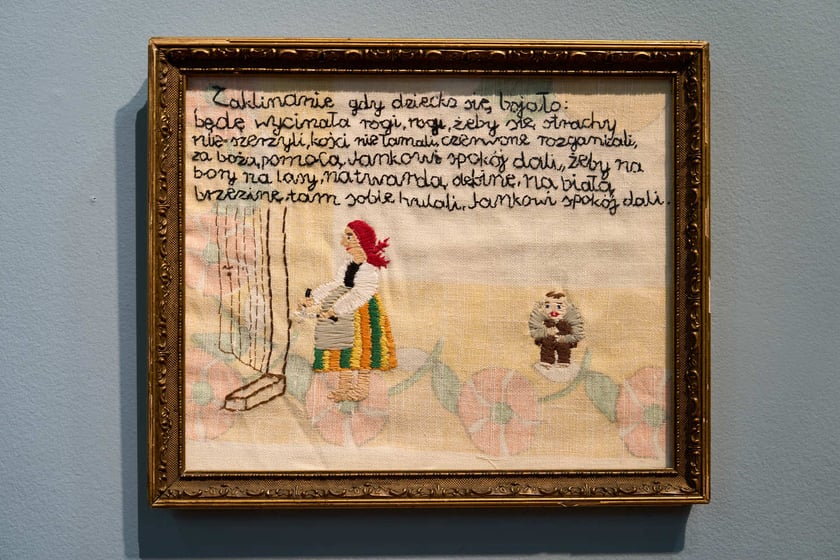 Zaklinanie gdy dziecko się bojało:
będę wycinała rogi, rogi, żeby się strachy
nie szerzyli, kości nie łamali, czerwone rozganiali,
za bożą pomocą Jankowi spokój dali, żeby na
bory na lasy, na twardą dębinę, na białą
brzezinę, tam sobie hulali, Jankowi spokój dali.